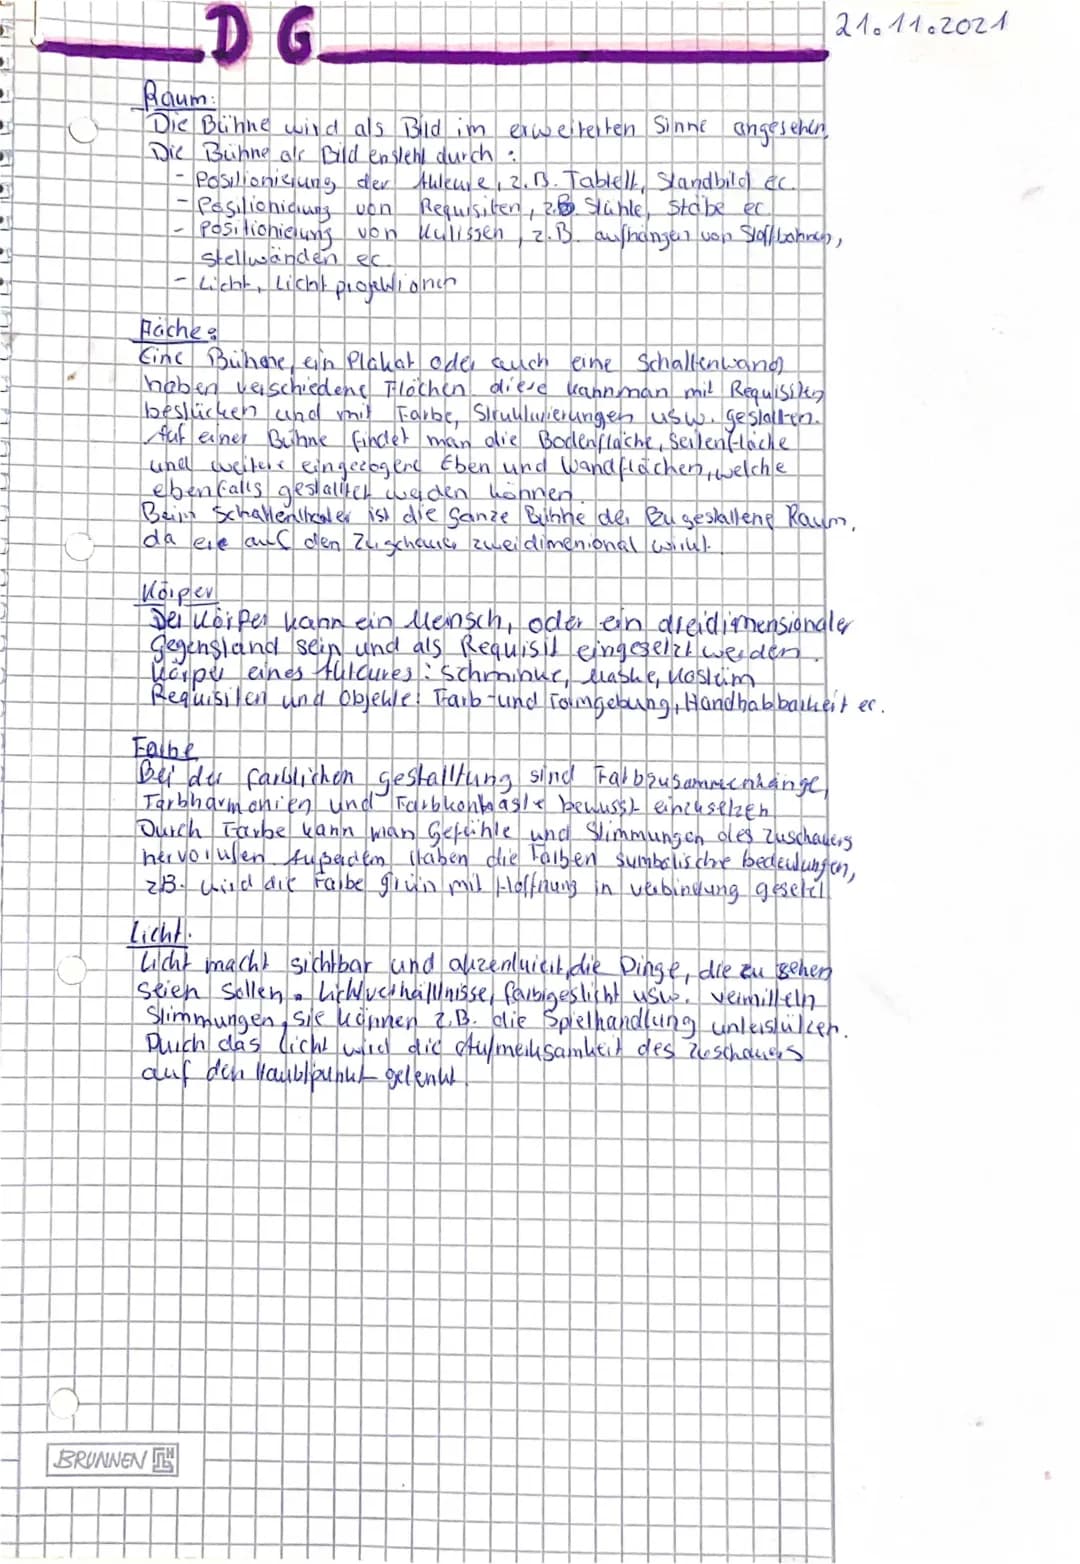 D G
21.11.2021
Raum:
Die Bühne wird als Bild im erweiterten Sinne angesehen
Die Bühne als Bild ensteht durch :
- Positionierung der Akteure, z.B. Tablett, Standbild ec.
- Positionierung von Requisiten, z.B. Stühle, Stäbe ec.
- Positionierung von Kulissen, z.B. aufhängen von Stoffbahnen,
Stellwänden ec.
- Licht, Lichtprojektionen
Fläche:
Eine Bühne, ein Plakat oder auch eine Schattenwand
haben verschiedene Flächen diese kannman mit Requisiten
bestücken und mit Farbe, Strukturierungen usw. gestalten.
Auf einer Bühne findet man die Bodenfläche, Seitenfläche
und weitere eingezogene Eben und Wandflächen, welche
ebenfalls gestaltet werden können.
Beim Schattentheater ist die ganze Bühne der Zugestaltene Raum,
da auf den Zuschauer zweidimenional wirkt.
Körper
Der Körper kann ein Mensch, oder ein dreidimensionaler
Gegenstand sein und als Requisit eingesetzt werden.
Körper eines Akteures: Schminke, Maske, Kostüm
Requisiten und Objekte: Farb-und Formgebung, Handhabbarkeit ec.
Farbe
Bei der farblichen gestalltung sind Farbzusammenhänge,
Farbharmonien und Farbkontraste bewusst einzusetzen
Durch Farbe kann man Gefühle und Stimmungen des Zuschauers
hervorufen. Außerdem haben die Farben symbolische bedeutungen,
z.B. wird die Farbe grün mit Hoffnung in verbindung gesetzt
Licht.
Licht macht sichtbar und die Dinge, die zu sehen
seien sollen. Lichtverhälltnisse, farbigeslicht usw. vermitteln
Stimmungen, sie können z.B. die Spielhandlung unterstützen.
Durch das licht wird die Aufmerksamkeit des Zuschauers
auf den Haubtpunkt gelenkt.
BRUNNEN